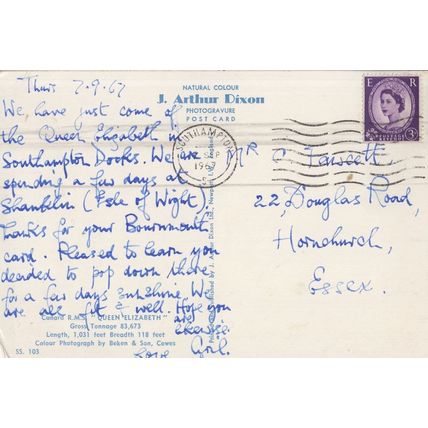 Thurs 7.9.67
NATURAL COLOUR
J. Arthur Dixon
PHOTOGRAVURE
POST CARD
E R
3D
SOUTHAMPTON
SEP
196
We, have just come of
the Queen Elizabeth in
Southampton Docks. We are
spending a few days at
Shanklin (Isle of Wight).
Thanks for your Bournmouth
card. Pleased to learn you
decided to pop down there
for a few days sunshine. We
are all fit & well. Hope you
are likewise.
Love
MR C. Fawcett.
22, Douglas Road,
Hornchurch,
Essex.
Cunard R.M.S. "QUEEN ELIZABETH"
Gross Tonnage 83,673
Length, 1,031 feet Breadth 118 feet
Colour Photograph by Beken & Son, Cowes
SS. 103